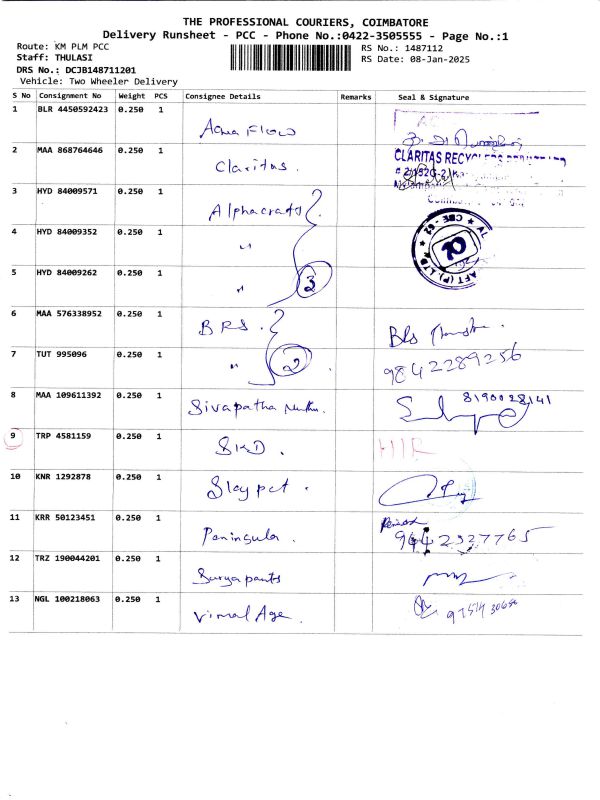 THE PROFESSIONAL COURIERS, COIMBATORE
Delivery Runsheet - PCC - Phone No.:0422-3505555 - Page No.:1
Route: KM PLM PCC
RS No.: 1487112
Staff: THULASI
RS Date: 08-Jan-2025
DRS No.: DCJB148711201
Vehicle: Two Wheeler Delivery
S No Consignment No Weight PCS Consignee Details Remarks Seal & Signature
1 BLR 4450592423 0.250 1 Aqua Flow
2 MAA 868764646 0.250 1 Claritas. CLARITAS
3 HYD 84009571 0.250 1 Alphacrafts
4 HYD 84009352 0.250 1 "
5 HYD 84009262 0.250 1 " 3
6 MAA 576338952 0.250 1 BRS.
7 TUT 995096 0.250 1 " 2 9842289256
8 MAA 109611392 0.250 1 Sivapatha Muthu. 8190028141
9 TRP 4581159 0.250 1 SKD. HIR
10 KNR 1292878 0.250 1
11 KRR 50123451 0.250 1 Peninsula. 9442927765
12 TRZ 190044201 0.250 1 Surya pants
13 NGL 100218063 0.250 1 Vimal Age.